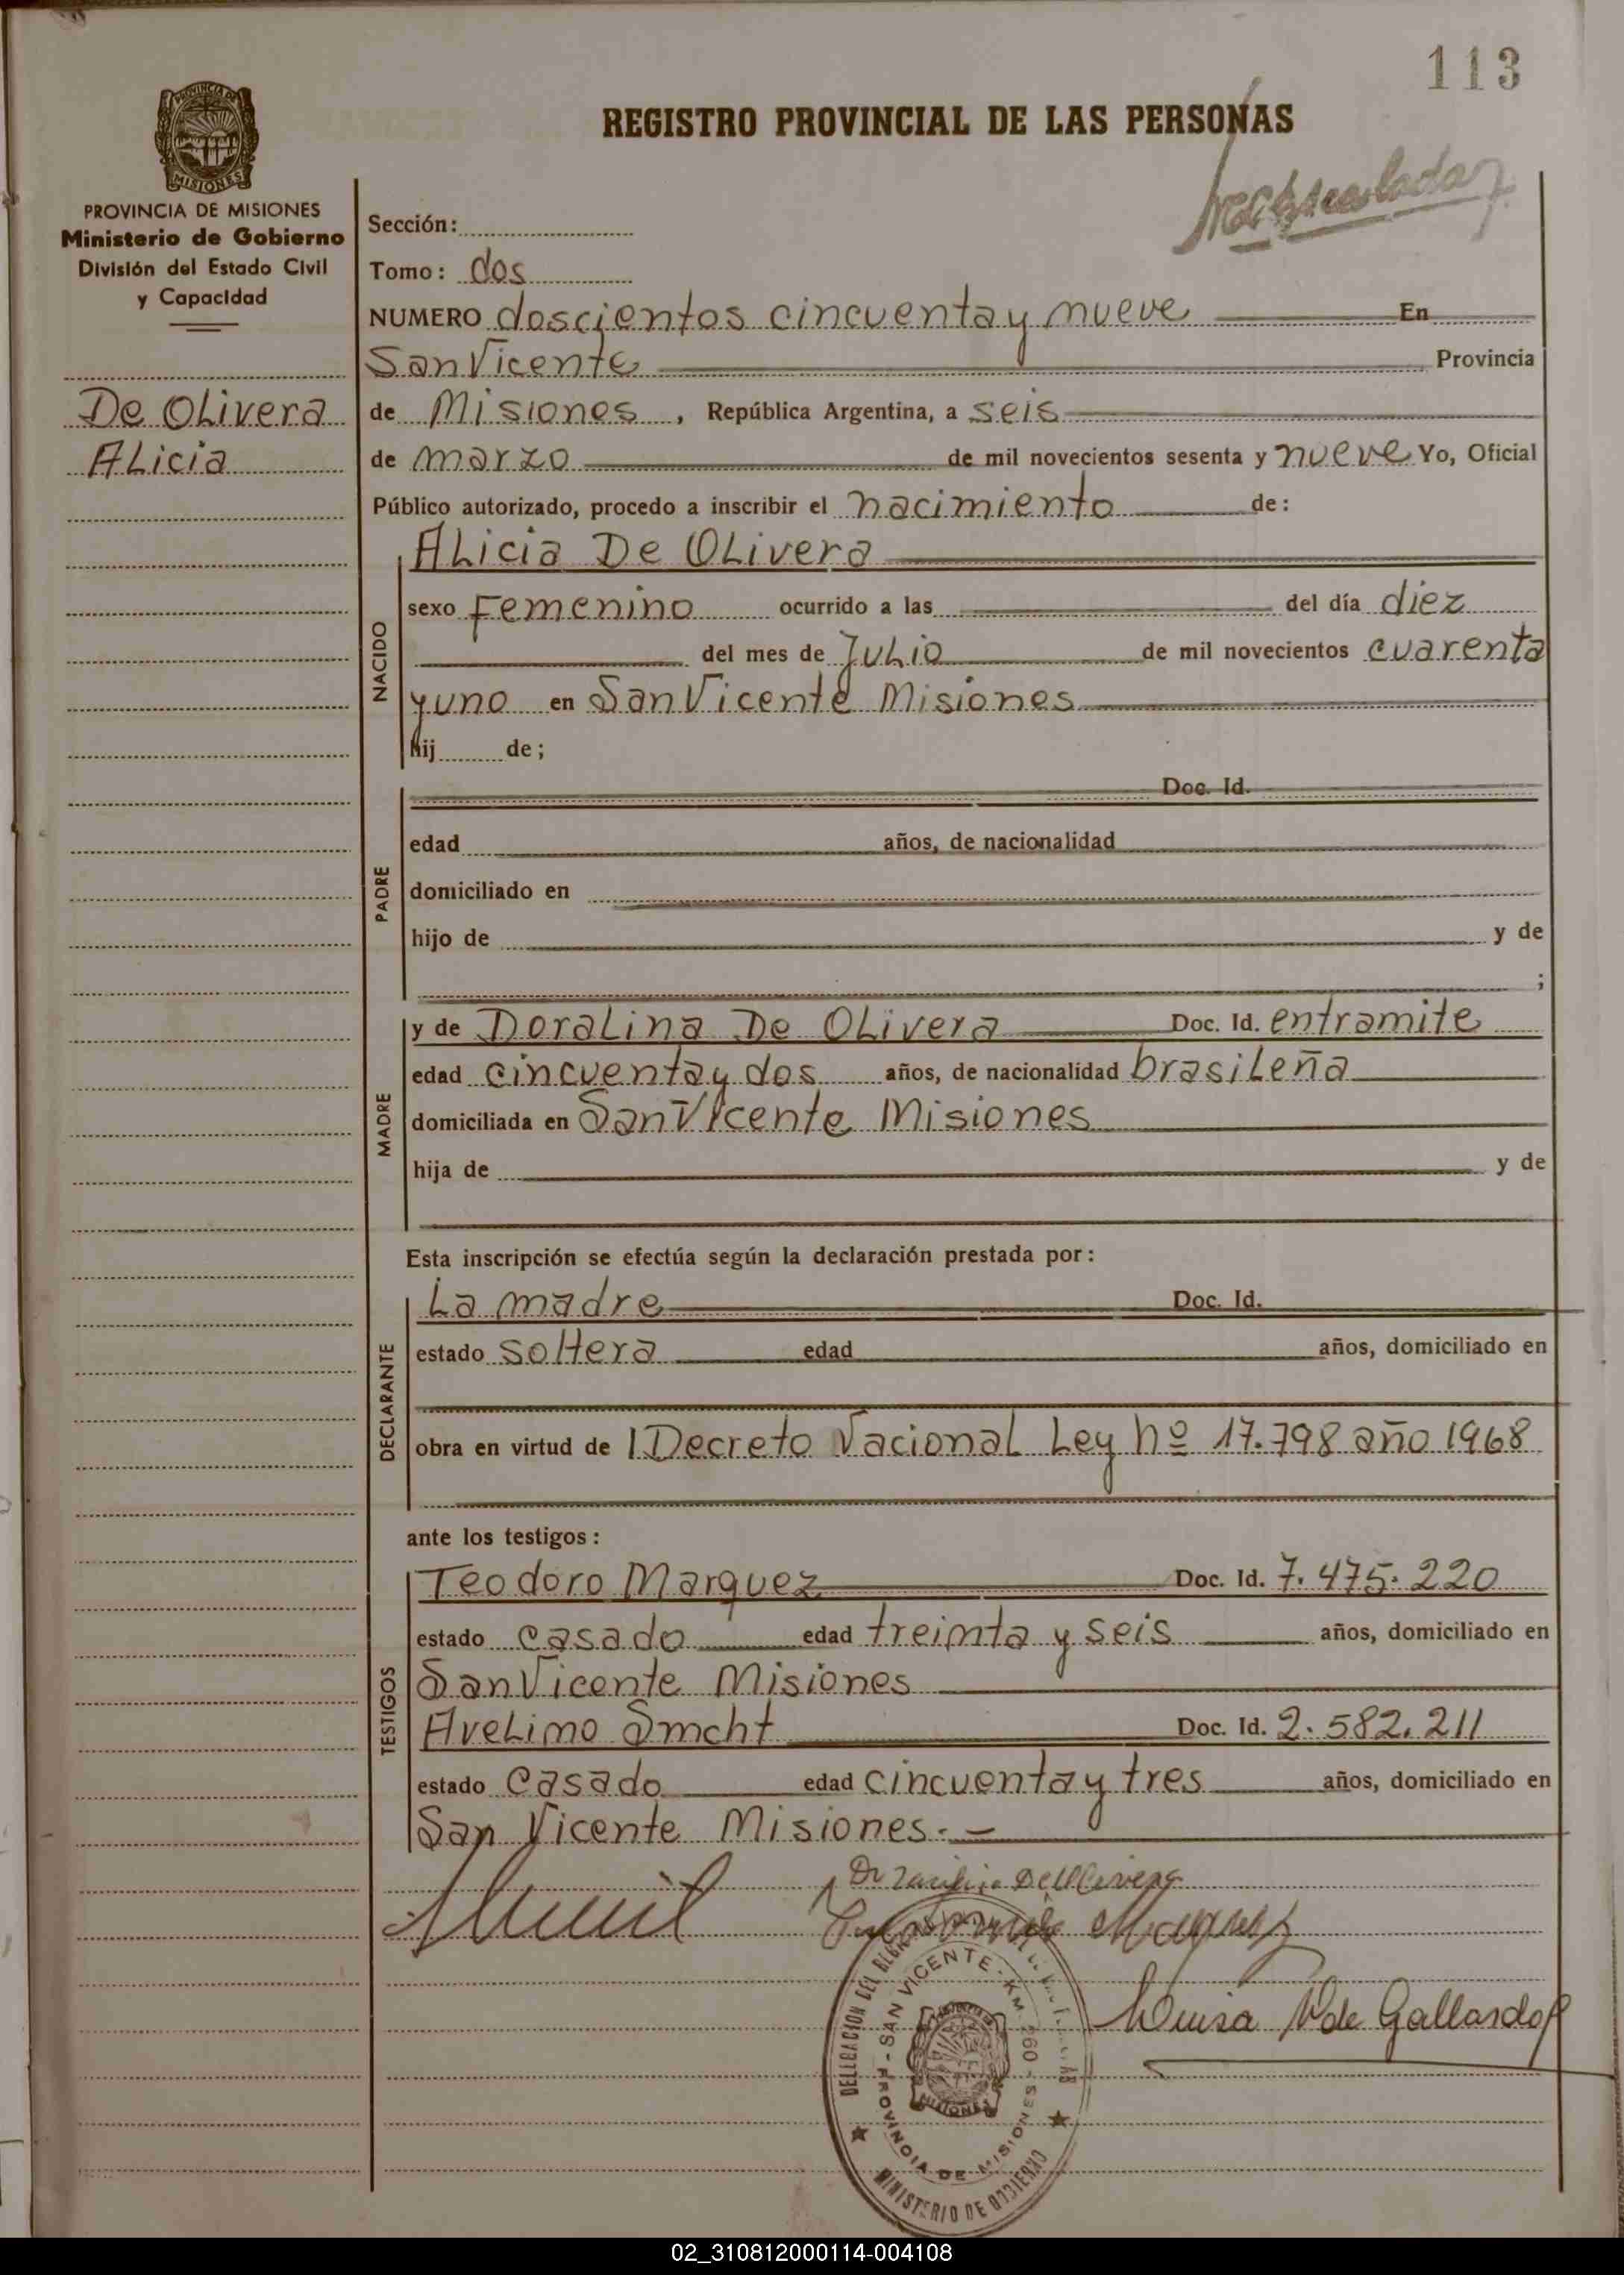 113
REGISTRO PROVINCIAL DE LAS PERSONAS
PROVINCIA DE MISIONES
Ministerio de Gobierno
División del Estado Civil
y Capacidad
De Olivera
Alicia
Sección:
Tomo: dos
NUMERO doscientos cincuenta y nueve En
San Vicente Provincia
de Misiones, República Argentina, a seis
de marzo de mil novecientos sesenta y nueve Yo, Oficial
Público autorizado, procedo a inscribir el nacimiento de:
NACIDO
Alicia De Olivera
sexo Femenino ocurrido a las del día diez
del mes de Julio de mil novecientos cuarenta
y uno en San Vicente Misiones
hij de;
PADRE
Doc. Id.
edad años, de nacionalidad
domiciliado en
hijo de y de
;
MADRE
y de Doralina De Olivera Doc. Id. entramite
edad cincuenta y dos años, de nacionalidad brasileña
domiciliada en San Vicente Misiones
hija de y de
Esta inscripción se efectúa según la declaración prestada por:
DECLARANTE
La madre Doc. Id.
estado soltera edad años, domiciliado en
obra en virtud de Decreto Nacional Ley nº 17.798 año 1968
ante los testigos:
TESTIGOS
Teodoro Marquez Doc. Id. 7.475.220
estado casado edad treinta y seis años, domiciliado en
San Vicente Misiones
Avelino Smcht Doc. Id. 2.582.211
estado casado edad cincuenta y tres años, domiciliado en
San Vicente Misiones.-
Luisa V de Gallardo
DELEGACION DEL
SAN VICENTE - KM. 260 - MISIONES
PROVINCIA DE MISIONES
MINISTERIO DE GOBIERNO
02_310812000114-004108